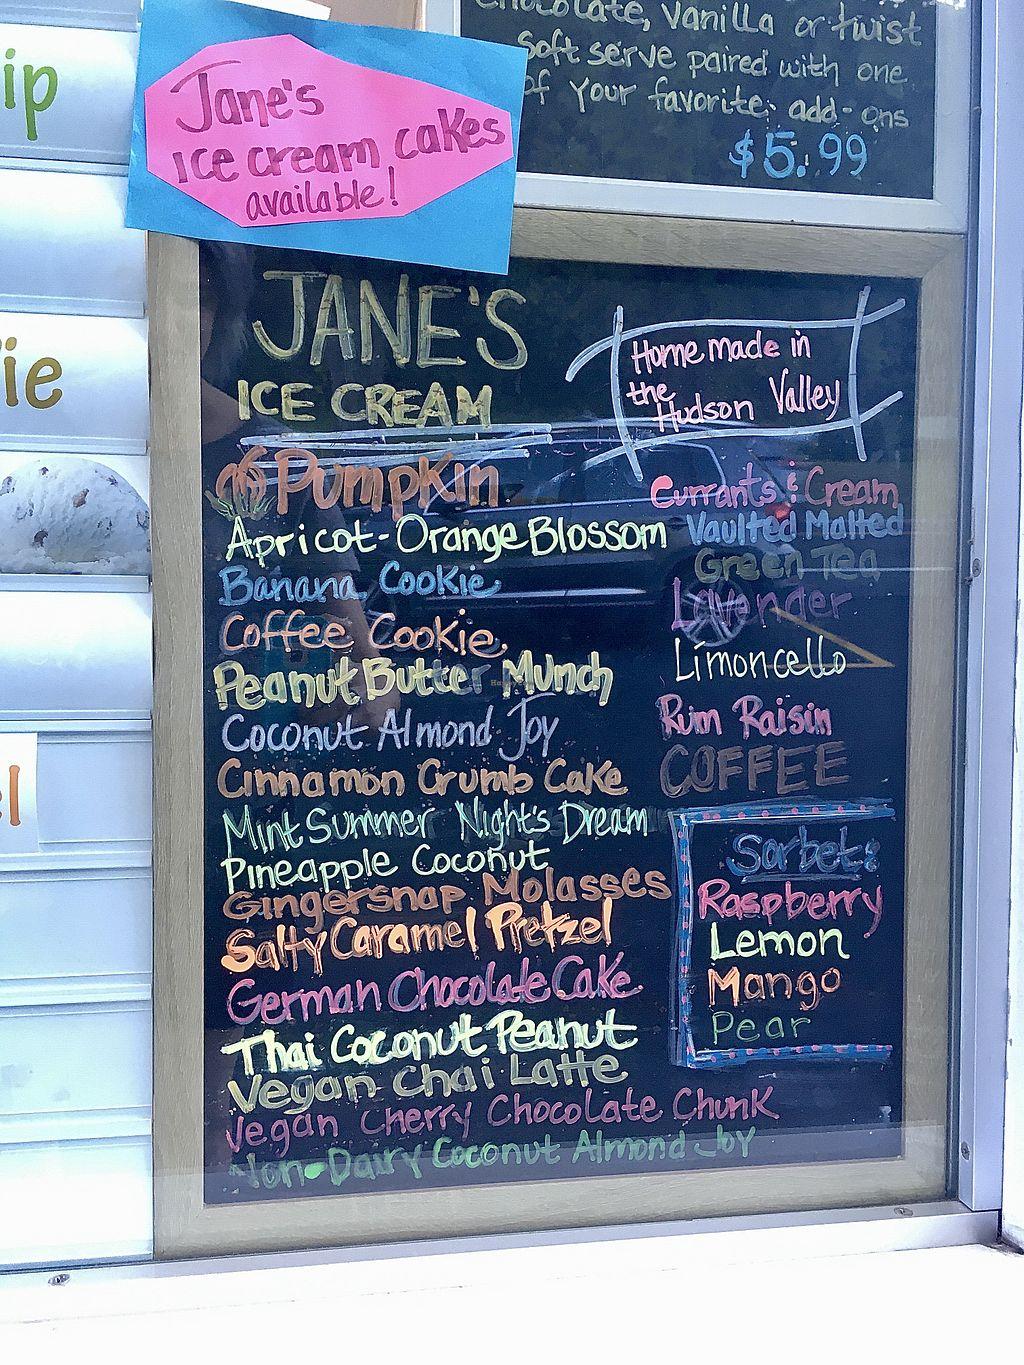 ip
ie
el
Jane's
ice cream cakes
available!
Chocolate, vanilla or twist
soft serve paired with one
of your favorite add-ons
$5.99
JANE'S
ICE CREAM
Homemade in
the
Hudson Valley
Pumpkin
Apricot-Orange Blossom
Banana Cookie
Coffee Cookie
Peanut Butter Munch
Coconut Almond Joy
Cinnamon Crumb Cake
Mint Summer Night's Dream
Pineapple Coconut
Gingersnap Molasses
Salty Caramel Pretzel
German Chocolate Cake
Thai Coconut Peanut
Vegan Chai Latte
Vegan Cherry Chocolate Chunk
Non-Dairy Coconut Almond Joy
Currants & Cream
Vaulted Malted
Green Tea
Lavender
Limoncello
Rum Raisin
COFFEE
Sorbet:
Raspberry
Lemon
Mango
Pear